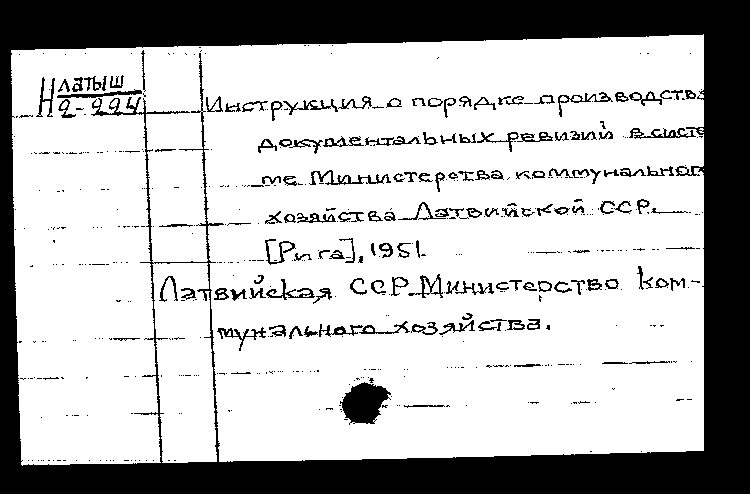 Н латыш
2-224
Инструкция о порядке производства
документальных ревизий в систе
ме Министерства коммунального
хозяйства Латвийской ССР.
[Рига], 1951.
Латвийская ССР Министерство ком-
мунального хозяйства.